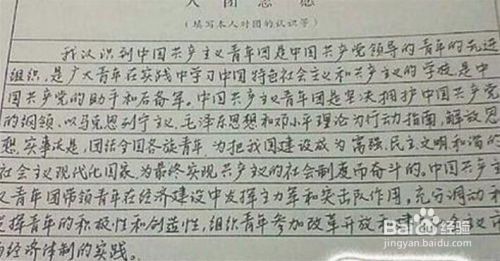 入团志愿
（填写本人对团的认识等）
我认识到中国共产主义青年团是中国共产党领导的青年的先进
组织，是广大青年在实践中学习中国特色社会主义和共产主义的学校，是中
国共产党的助手和后备军。中国共产主义青年团是坚决拥护中国共产党
的纲领，以马克思列宁主义，毛泽东思想和邓小平理论为行动指南，解放思
想，实事求是，团结全国各族青年，为把我国建设成为富强，民主文明和谐的
社会主义现代化国家，为最终实现共产主义的社会制度而奋斗的。中国共产主
义青年团带领青年在经济建设中发挥主力军和突击队作用，充分调动
发挥青年的积极性和创造性，组织青年参加改革开放
经济体制的实践。
Baidu 经验
jingyan.baidu.com